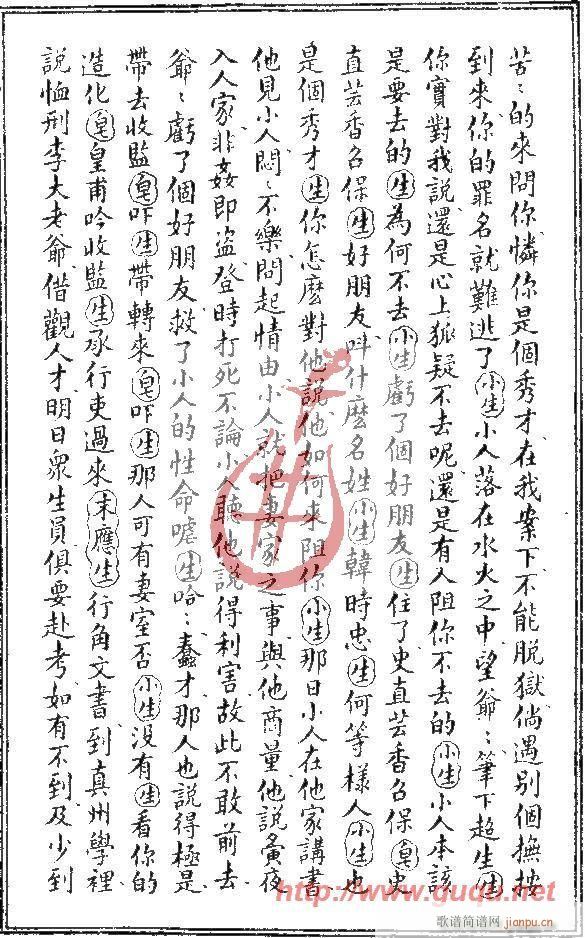 苦〻的來問你憐你是個秀才在我案下不能脱獄倘遇别個撫按
到來你的罪名就難逃了小生小人落在水火之中望爺〻筆下超生生
你實對我說還是心上狐疑不去呢還是有人阻你不去的小生小人本該
是要去的生為何不去小生虧了個好朋友生住了史直芸香名保皂史
直芸香名保生好朋友呌什麽名姓小生韓時忠生何等樣人小生也
是個秀才生你怎麽對他說他如何來阻你小生那日小人在他家講書
他見小人悶〻不樂問起情由小人就把妻家之事與他商量他説夤夜
入人家非姦即盜登時打死不論小人聽他說得利害故此不敢前去
爺〻虧了個好朋友救了小人的性命嚧生哈〻蠢才那人也說得極是
帶去收監皂吓生帶轉來皂吓生那人可有妻室否小生没有生看你的
造化皂皇甫吟收監生承行吏過來末應生行角文書到真州學裡
說恤刑李大老爺借觀人才明日衆生員俱要赴考如有不到及少到
http://www.guqu.net
歌谱简谱网
jianpu.cn